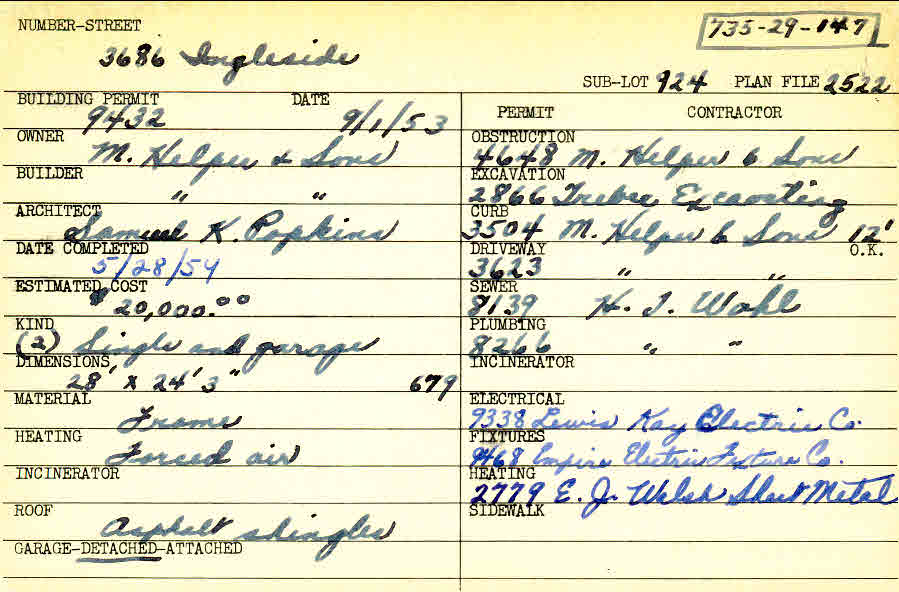 NUMBER-STREET
735-29-147
3686 Ingleside
SUB-LOT 924 PLAN FILE 2522
BUILDING PERMIT DATE
9432 9/1/53
OWNER
M. Helper & Sons
BUILDER
" "
ARCHITECT
Samuel K. Popkins
DATE COMPLETED
5/28/54
ESTIMATED COST
$20,000.00
KIND
(2) Single and garage
DIMENSIONS
28' x 24' 3" 679
MATERIAL
Frame
HEATING
Forced air
INCINERATOR
ROOF
Asphalt shingles
GARAGE-DETACHED-ATTACHED
PERMIT CONTRACTOR
OBSTRUCTION
4648 M. Helper & Sons
EXCAVATION
2866 Excavating
CURB
3504 M. Helper & Sons 12'
O.K.
DRIVEWAY
3623 " "
SEWER
8139 H. J. Wohl
PLUMBING
8266 " "
INCINERATOR
ELECTRICAL
9338 Lewis Kay Electric Co.
FIXTURES
9468 Empire Electric Fixture Co.
HEATING
2779 E. J. Walsh Sheet Metal
SIDEWALK